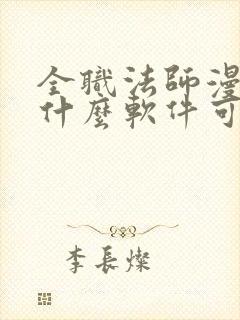 全職法師漫
什麼軟件可
李長燦